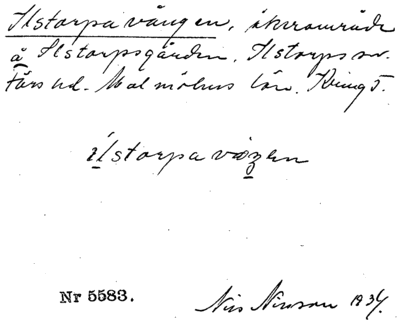 Ilstorpa vången, åkerområde
å Ilstorpsgården, Ilstorps sn.
Färs hd. Malmöhus län.
ilstorpa våzen
Nr 5583.
Nils Nilsson 1934.